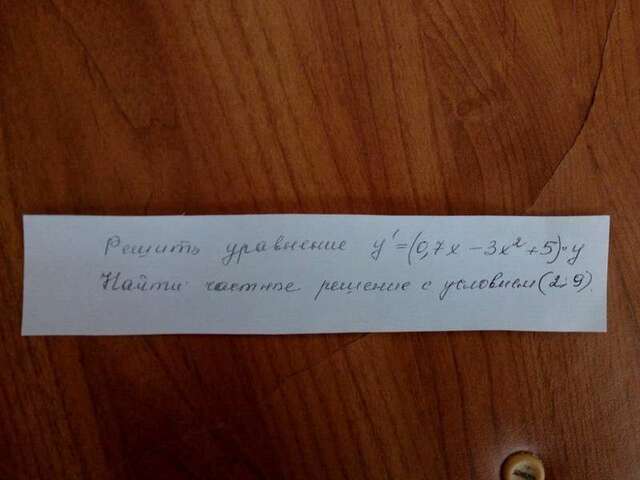 Решить уравнение y'=(0,7x-3x²+5)·y
Найти частное решение с условием (2;9).